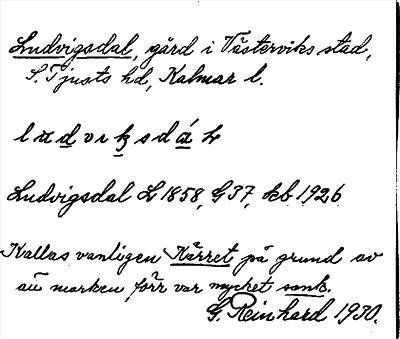 Ludvigsdal, gård i Västerviks stad,
S. Tjusts hd, Kalmar l.
Ludvigsdal L 1858, G 37, kb. 1926
Kallas vanligen Kärret på grund av
att marken förr var mycket sank.
G. Reinhard 1930.